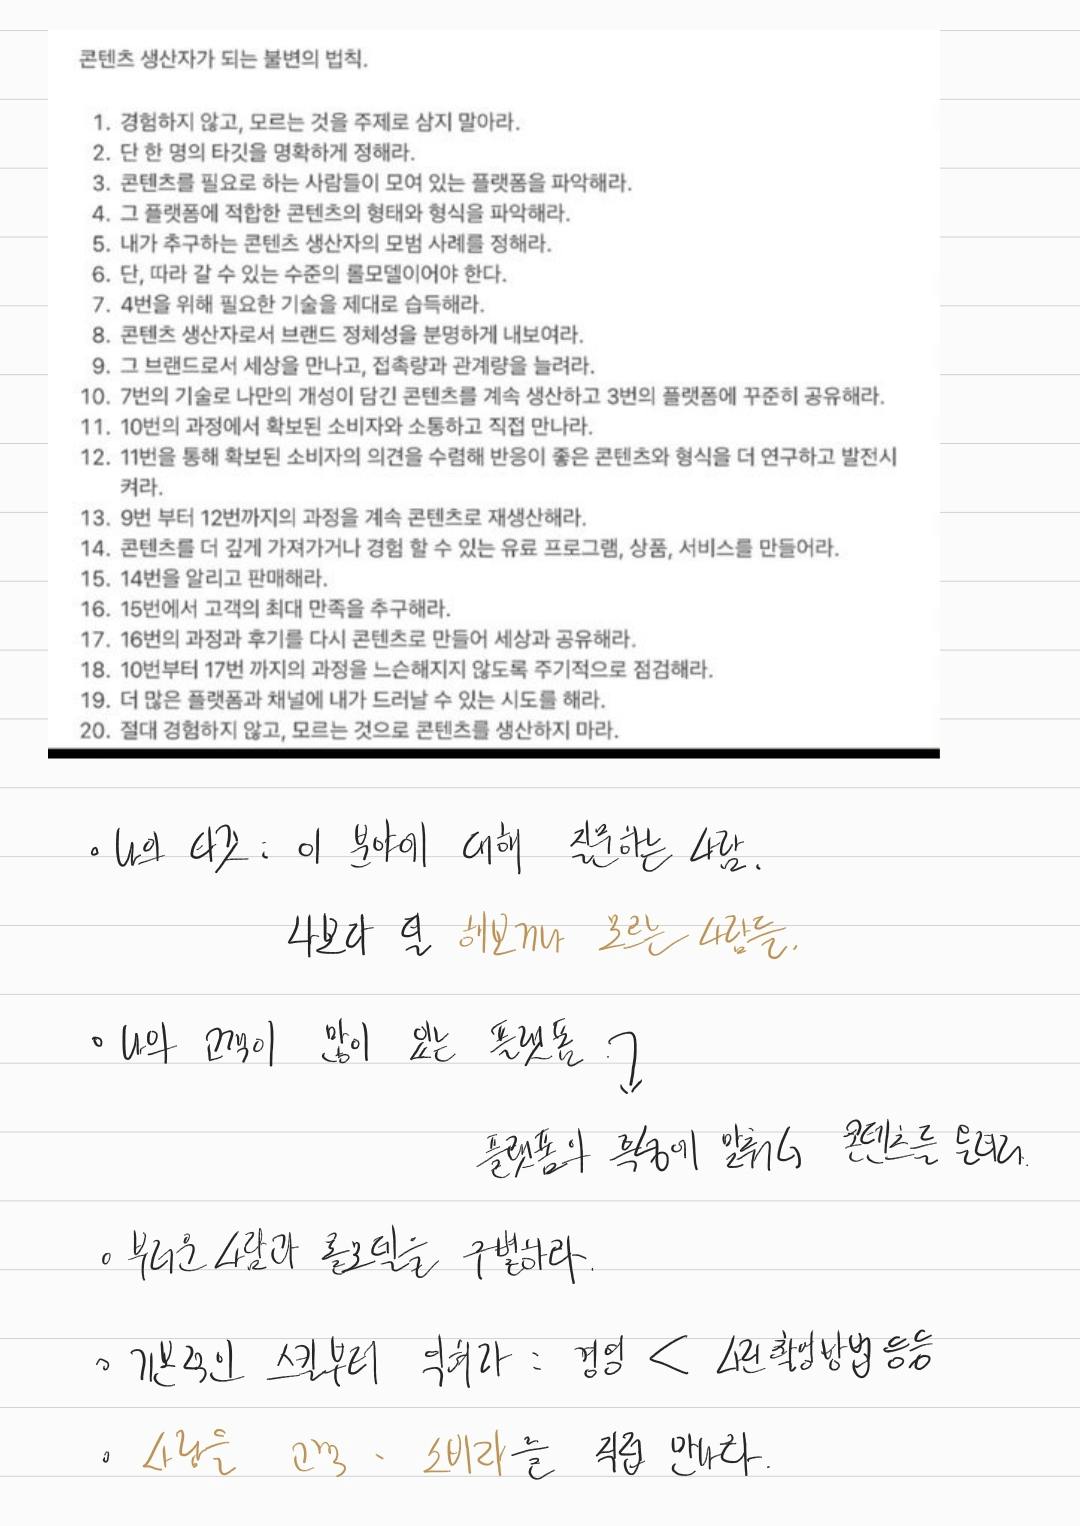 콘텐츠 생산자가 되는 불변의 법칙.
1. 경험하지 않고, 모르는 것을 주제로 삼지 말아라.
2. 단 한 명의 타깃을 명확하게 정해라.
3. 콘텐츠를 필요로 하는 사람들이 모여 있는 플랫폼을 파악해라.
4. 그 플랫폼에 적합한 콘텐츠의 형태와 형식을 파악해라.
5. 내가 추구하는 콘텐츠 생산자의 모범 사례를 정해라.
6. 단, 따라 갈 수 있는 수준의 롤모델이어야 한다.
7. 4번을 위해 필요한 기술을 제대로 습득해라.
8. 콘텐츠 생산자로서 브랜드 정체성을 분명하게 내보여라.
9. 그 브랜드로서 세상을 만나고, 접촉량과 관계량을 늘려라.
10. 7번의 기술로 나만의 개성이 담긴 콘텐츠를 계속 생산하고 3번의 플랫폼에 꾸준히 공유해라.
11. 10번의 과정에서 확보된 소비자와 소통하고 직접 만나라.
12. 11번을 통해 확보된 소비자의 의견을 수렴해 반응이 좋은 콘텐츠와 형식을 더 연구하고 발전시
켜라.
13. 9번 부터 12번까지의 과정을 계속 콘텐츠로 재생산해라.
14. 콘텐츠를 더 깊게 가져가거나 경험 할 수 있는 유료 프로그램, 상품, 서비스를 만들어라.
15. 14번을 알리고 판매해라.
16. 15번에서 고객의 최대 만족을 추구해라.
17. 16번의 과정과 후기를 다시 콘텐츠로 만들어 세상과 공유해라.
18. 10번부터 17번 까지의 과정을 느슨해지지 않도록 주기적으로 점검해라.
19. 더 많은 플랫폼과 채널에 내가 드러날 수 있는 시도를 해라.
20. 절대 경험하지 않고, 모르는 것으로 콘텐츠를 생산하지 마라.
• 나의 타깃 : 이 분야에 대해 질문하는 사람.
나보다 덜 해보거나 모르는 사람들.
• 나의 고객이 많이 있는 플랫폼
플랫폼의 특징에 맞춰서 콘텐츠를 올려라.
• 부러운 사람과 롤모델을 구별하라.
• 기본적인 스킬부터 익혀라 : 경영 < 사진촬영방법 등등
• 사람들 고객, 소비자를 직접 만나라.